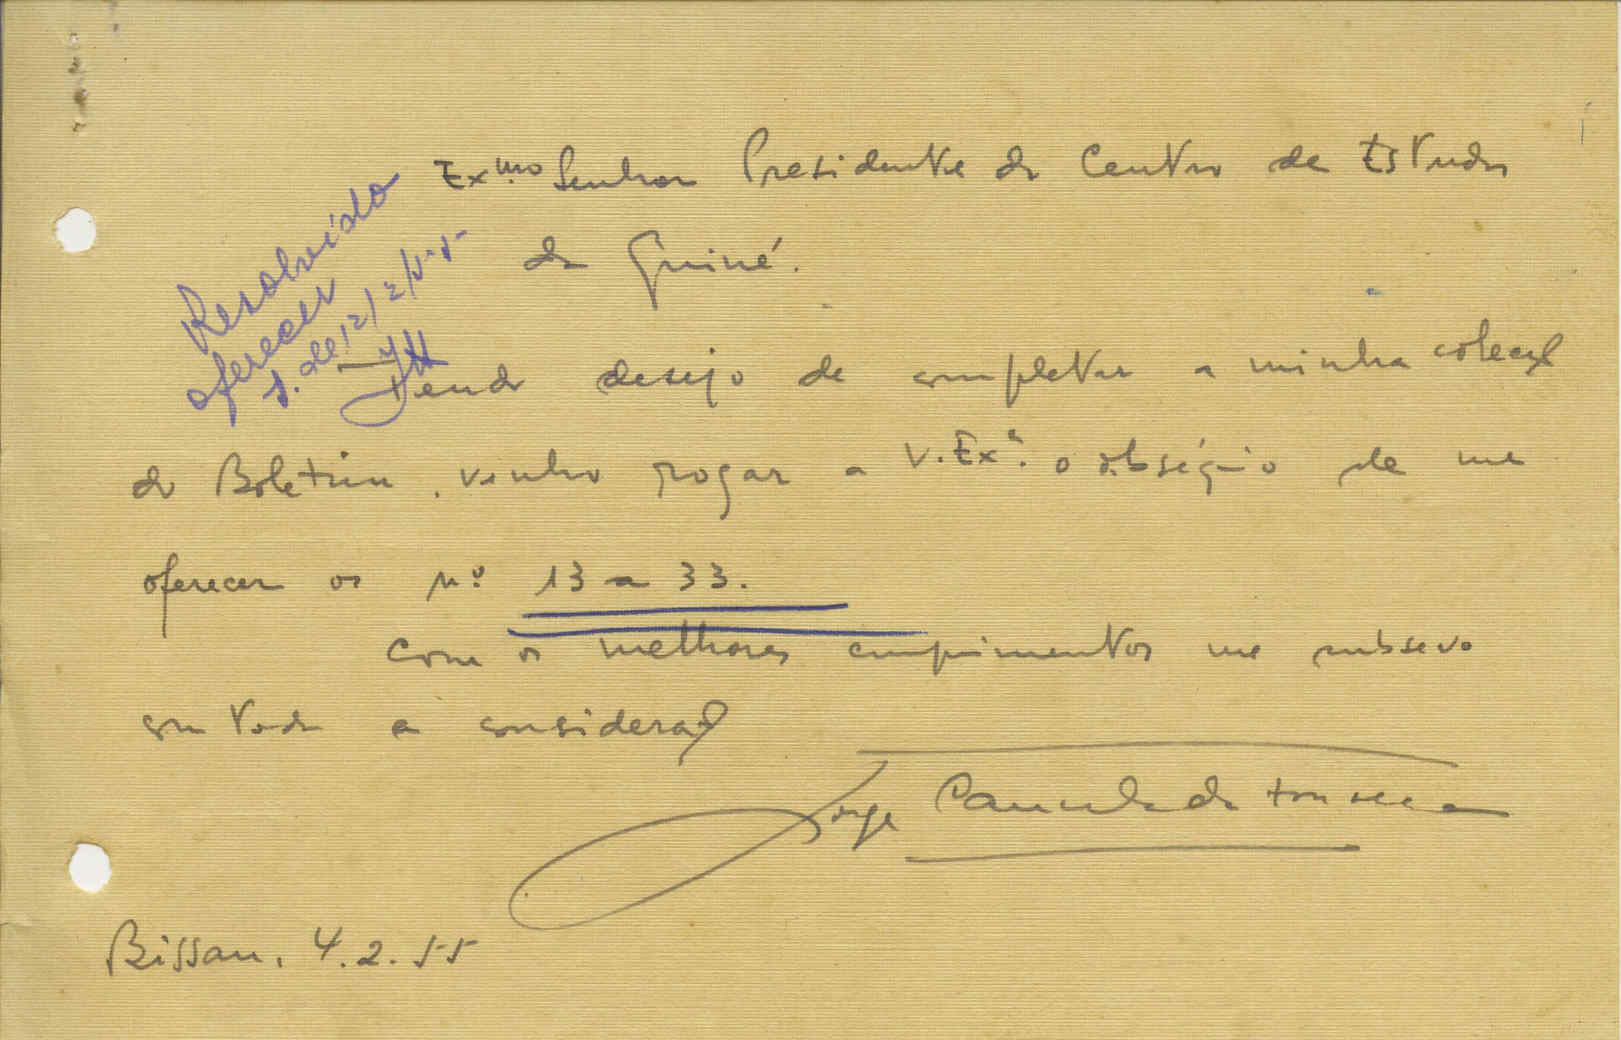 Exmo Senhor Presidente do Centro de Estudos
da Guiné.
Resolvido
oferecer
S. de 12/2/55
Tendo desejo de completar a minha coleção
do Boletim, venho rogar a V. Exª. o obséquio de me
oferecer os nº 13 a 33.
Com os melhores cumprimentos me subscrevo
com toda a consideração
Jorge da Fonseca
Bissau, 4.2.55